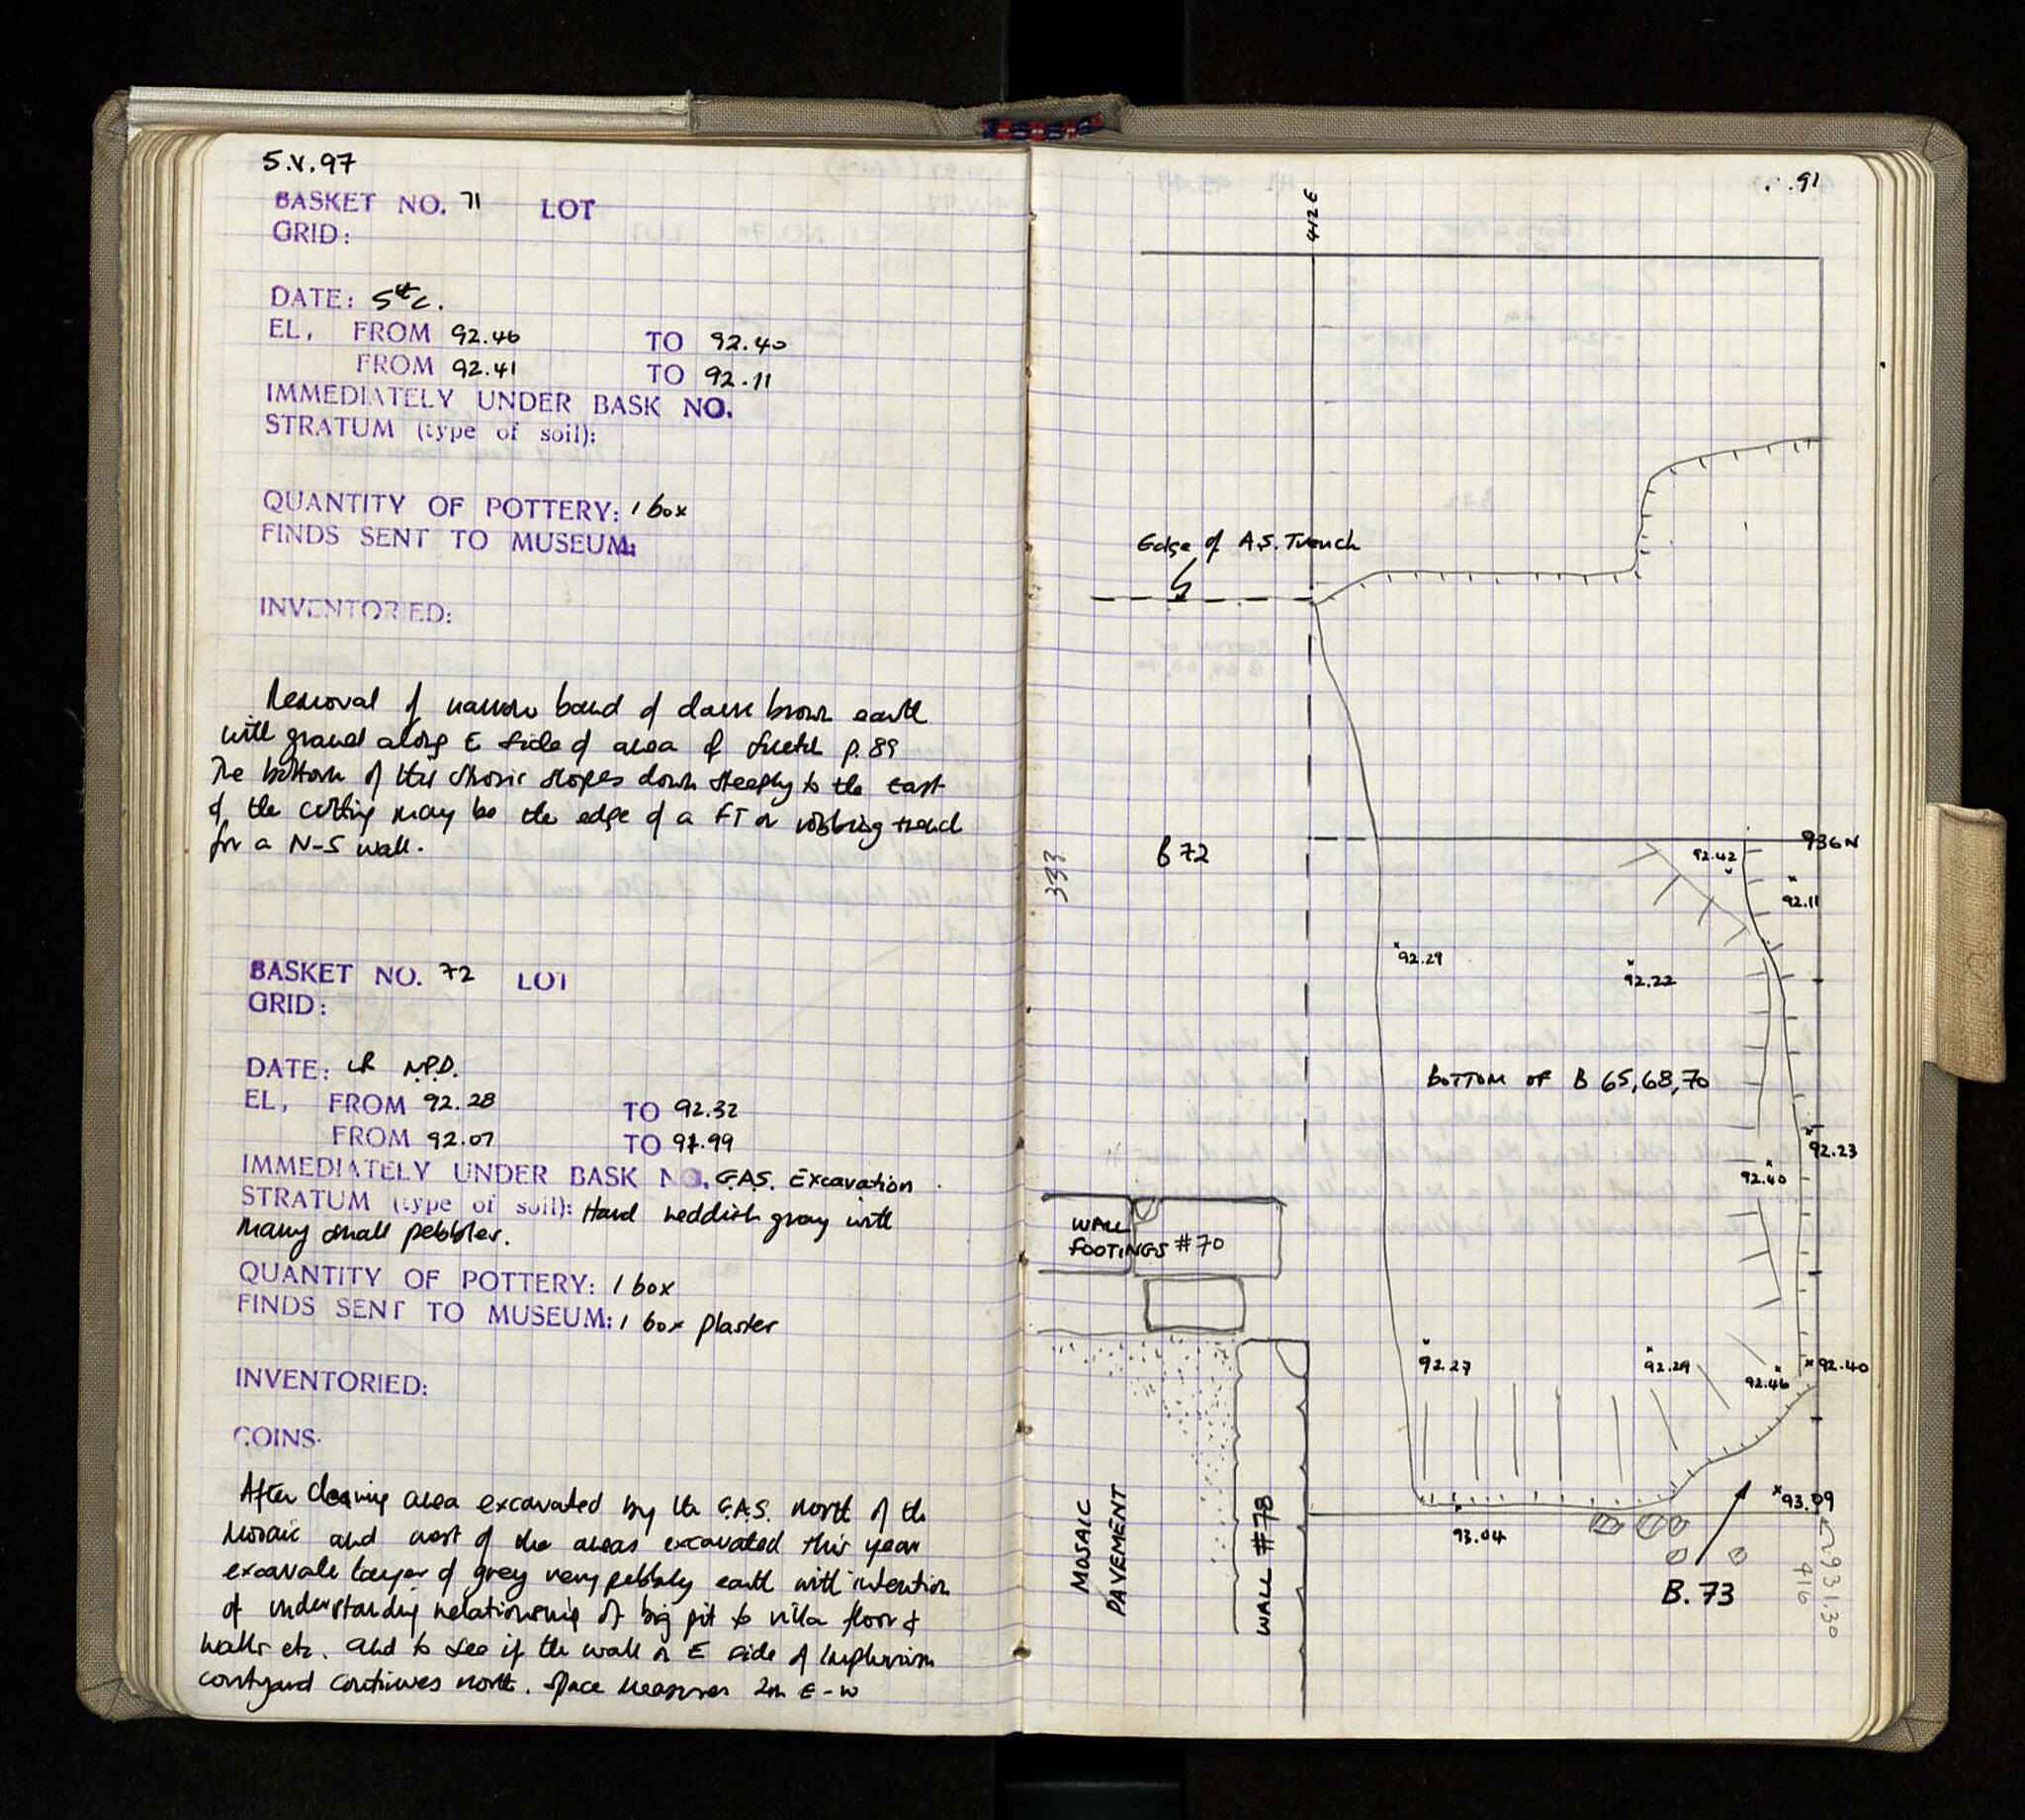 5.V.97
BASKET NO. 71 LOT
GRID:
DATE: 5th c.
EL, FROM 92.46 TO 92.40
FROM 92.41 TO 92.11
IMMEDIATELY UNDER BASK NO.
STRATUM (type of soil):
QUANTITY OF POTTERY: 1 box
FINDS SENT TO MUSEUM:
INVENTORIED:
Removal of narrow band of dark brown earth
with gravel along E side of area of sketch p. 89
The bottom of this slopes down steeply to the east
of the cutting may be the edge of a FT or robbing trench
for a N-S wall.
BASKET NO. 72 LOT
GRID:
DATE: LR N.P.D.
EL, FROM 92.28 TO 92.32
FROM 92.07 TO 91.99
IMMEDIATELY UNDER BASK NO. G.A.S. Excavation
STRATUM (type of soil): Hard reddish gray with
many small pebbles.
QUANTITY OF POTTERY: 1 box
FINDS SENT TO MUSEUM: 1 box plaster
INVENTORIED:
COINS:
After cleaning area excavated by the G.A.S. north of the
mosaic and west of the areas excavated this year
excavate layer of grey very pebbly earth with intention
of understanding relationship of big pit to villa floor &
walls etc. and to see if the wall on E side of
courtyard continues north. Space measures 2m E-W
91
412E
Edge of A.S. Trench
B 72
333
936N
92.42
92.11
92.29
92.22
BOTTOM OF B 65,68,70
92.23
92.40
WALL
FOOTINGS #70
92.27
92.29
92.46
92.40
MOSAIC
PAVEMENT
WALL #78
93.04
93.09
B. 73
931.30
416